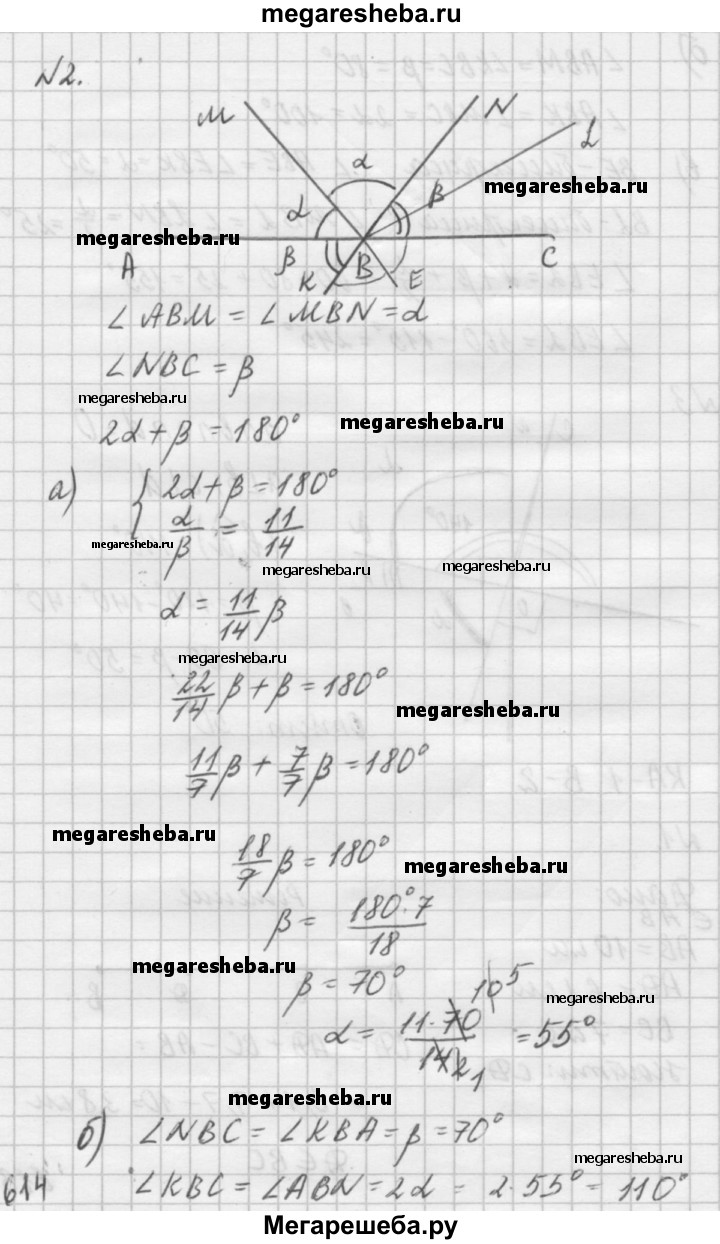 megaresheba.ru
N2.
M N L
α
megaresheba.ru
α β
megaresheba.ru
A β K B E C
∠ABM = ∠MBN = α
∠NBC = β
megaresheba.ru
2α + β = 180° megaresheba.ru
а) { 2α + β = 180°
α/β = 11/14
megaresheba.ru
megaresheba.ru megaresheba.ru
α = 11/14 β
megaresheba.ru
22/14 β + β = 180°
megaresheba.ru
11/7 β + 7/7 β = 180°
megaresheba.ru
18/7 β = 180°
megaresheba.ru
β = 180°·7/18
megaresheba.ru
β = 70° 10 5
megaresheba.ru
α = 11·70/14 = 55°
2 1
megaresheba.ru
б) ∠NBC = ∠KBA = β = 70°
614 ∠KBC = ∠ABN = 2α = 2·55° = 110°
Мегарешеба.ру